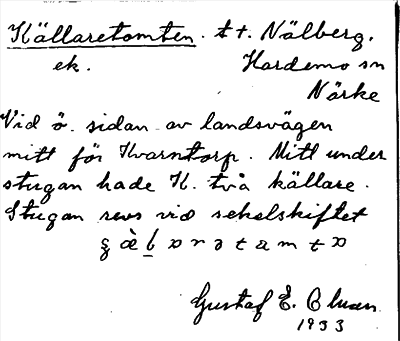 Källaretomten. t t. Nälberg.
ek. Hardemo sn
Närke
Vid ö. sidan av landsvägen
mitt för Kvarntorp. Mitt under
stugan hade K. två källare.
Stugan revs vid sekelskiftet
Gustaf E.
1933